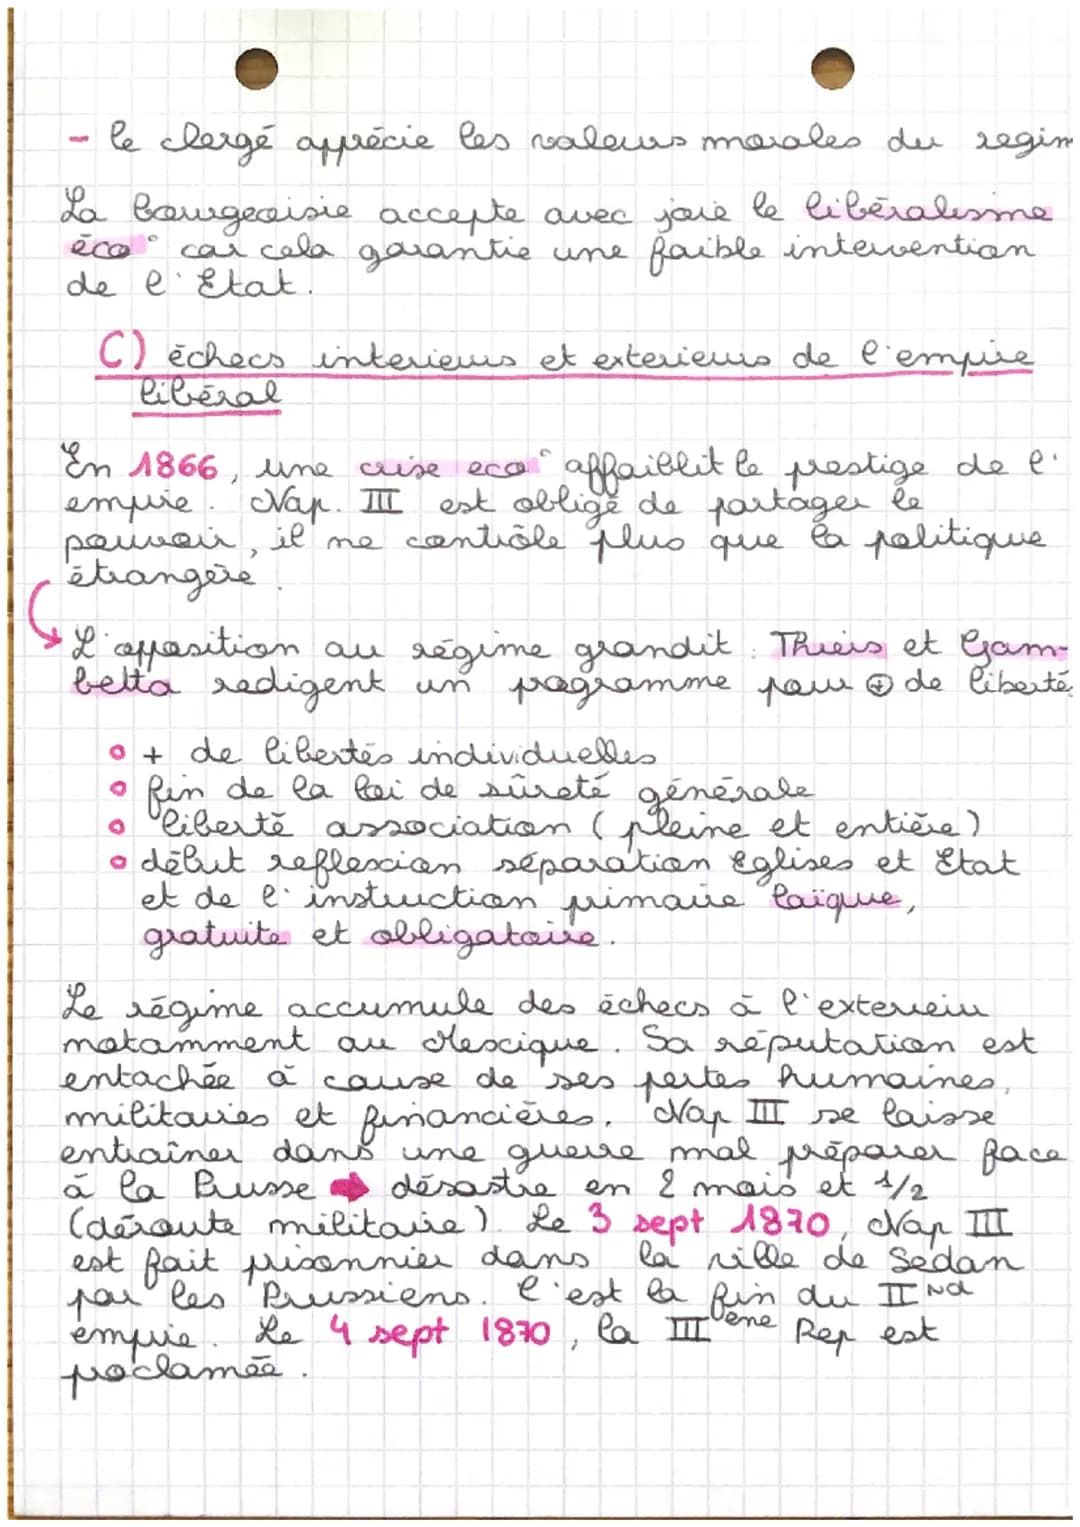 - le clergé apprécie les valeurs morales du regim
La bourgeoisie accepte avec joie le libéralisme
éco° car cela garantie une faible intervention
de l'Etat.
C) échecs interieurs et exterieurs de l'empire
libéral
En 1866, une crise eco° affaiblit le prestige de l'
empire. Nap. III est obligé de partager le
pouvoir, il ne contrôle plus que la politique
étrangère.
L'opposition au régime grandit : Thiers et Gam-
betta redigent un programme pour ⊕ de liberté
° + de libertés individuelles
° fin de la loi de sûreté générale
° liberté association (pleine et entière)
° début reflexion séparation Eglises et Etat
et de l'instruction primaire laïque,
gratuite et obligatoire.
Le régime accumule des échecs à l'exterieur
notamment au Mexique. Sa réputation est
entachée à cause de ses pertes humaines,
militaires et financières. Nap III se laisse
entraîner dans une guerre mal préparer face
à la Prusse ➡ désastre en 2 mois et 1/2
(déroute militaire). Le 3 sept 1870, Nap III
est fait prisonnier dans la ville de Sedan
par les Prussiens. C'est la fin du II Nd
empire. Le 4 sept 1870, la III ème Rep est
proclamée.